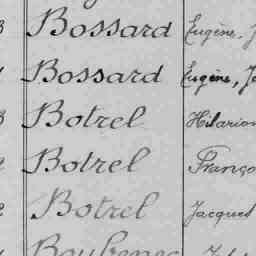 Bossard Eugène, J
Bossard Eugène, Jo
Botrel Hilarion
Botrel Franço
Botrel Jacques